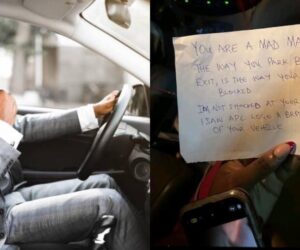 YOU ARE A MAD MA
THE WAY YOU PARK B
EXIT, IS THE WAY YOUR
BLOCKED
IAM NOT SHOCKED AT YOUR
I SAW APC LOGO & BR
OF YOUR VEHICLE